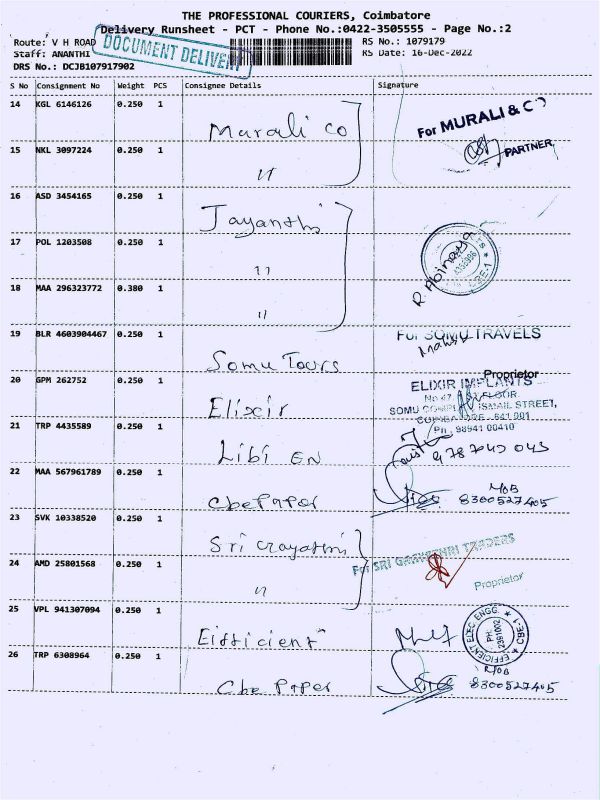 THE PROFESSIONAL COURIERS, Coimbatore
Delivery Runsheet - PCT - Phone No.:0422-3505555 - Page No.:2
Route: V H ROAD
RS No.: 1079179
Staff: ANANTHI
RS Date: 16-Dec-2022
DOCUMENT DELIVERY
DRS No.: DCJB107917902
S No Consignment No Weight PCS Consignee Details Signature
14 KGL 6146126 0.250 1 Murali co
For MURALI & C
PARTNER
15 NKL 3097224 0.250 1 "
16 ASD 3454165 0.250 1 Jayanthi
17 POL 1203508 0.250 1 "
R. Abinaya
CBE-1
18 MAA 296323772 0.380 1 "
19 BLR 4603904467 0.250 1 Somu Tours
For SOMU TRAVELS
Proprietor
20 GPM 262752 0.250 1 Elixir
ELIXIR IMPLANTS
SOMU COMPLEX ISMAIL STREET,
COIMBATORE - 641 001
Ph : 98941 00410
21 TRP 4435589 0.250 1 Libi EN
22 MAA 567961789 0.250 1 Cbe Paper
MOB
8300527405
23 SVK 10338520 0.250 1 Sri Gayathri
For SRI GAAYATHRI TRADERS
Proprietor
24 AMD 25801568 0.250 1 "
25 VPL 941307094 0.250 1 Efficient
EFFICIENT ELEC. ENGG. * CBE-1 *
PH: 2391002
26 TRP 6308964 0.250 1 Cbe Paper
MOB
8300527405